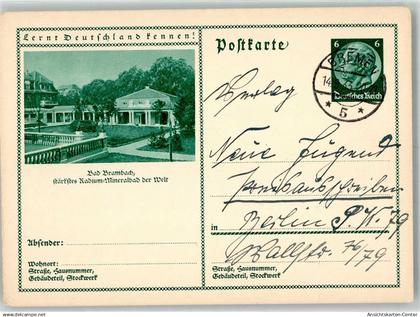 Lernt Deutschland kennen!
Postkarte
6 6
Deutsches Reich
BREMEN
14
* 5 *
Verlag
Neue Jugend
Preisausschreiben
in Berlin S.W. 29
Wallstr. 76/79
Bad Brambach,
stärkstes Radium-Mineralbad der Welt
Absender:
Wohnort:
Straße, Hausnummer,
Gebäudeteil, Stockwerk
Straße, Hausnummer,
Gebäudeteil, Stockwerk
Ansichtskarten-Center